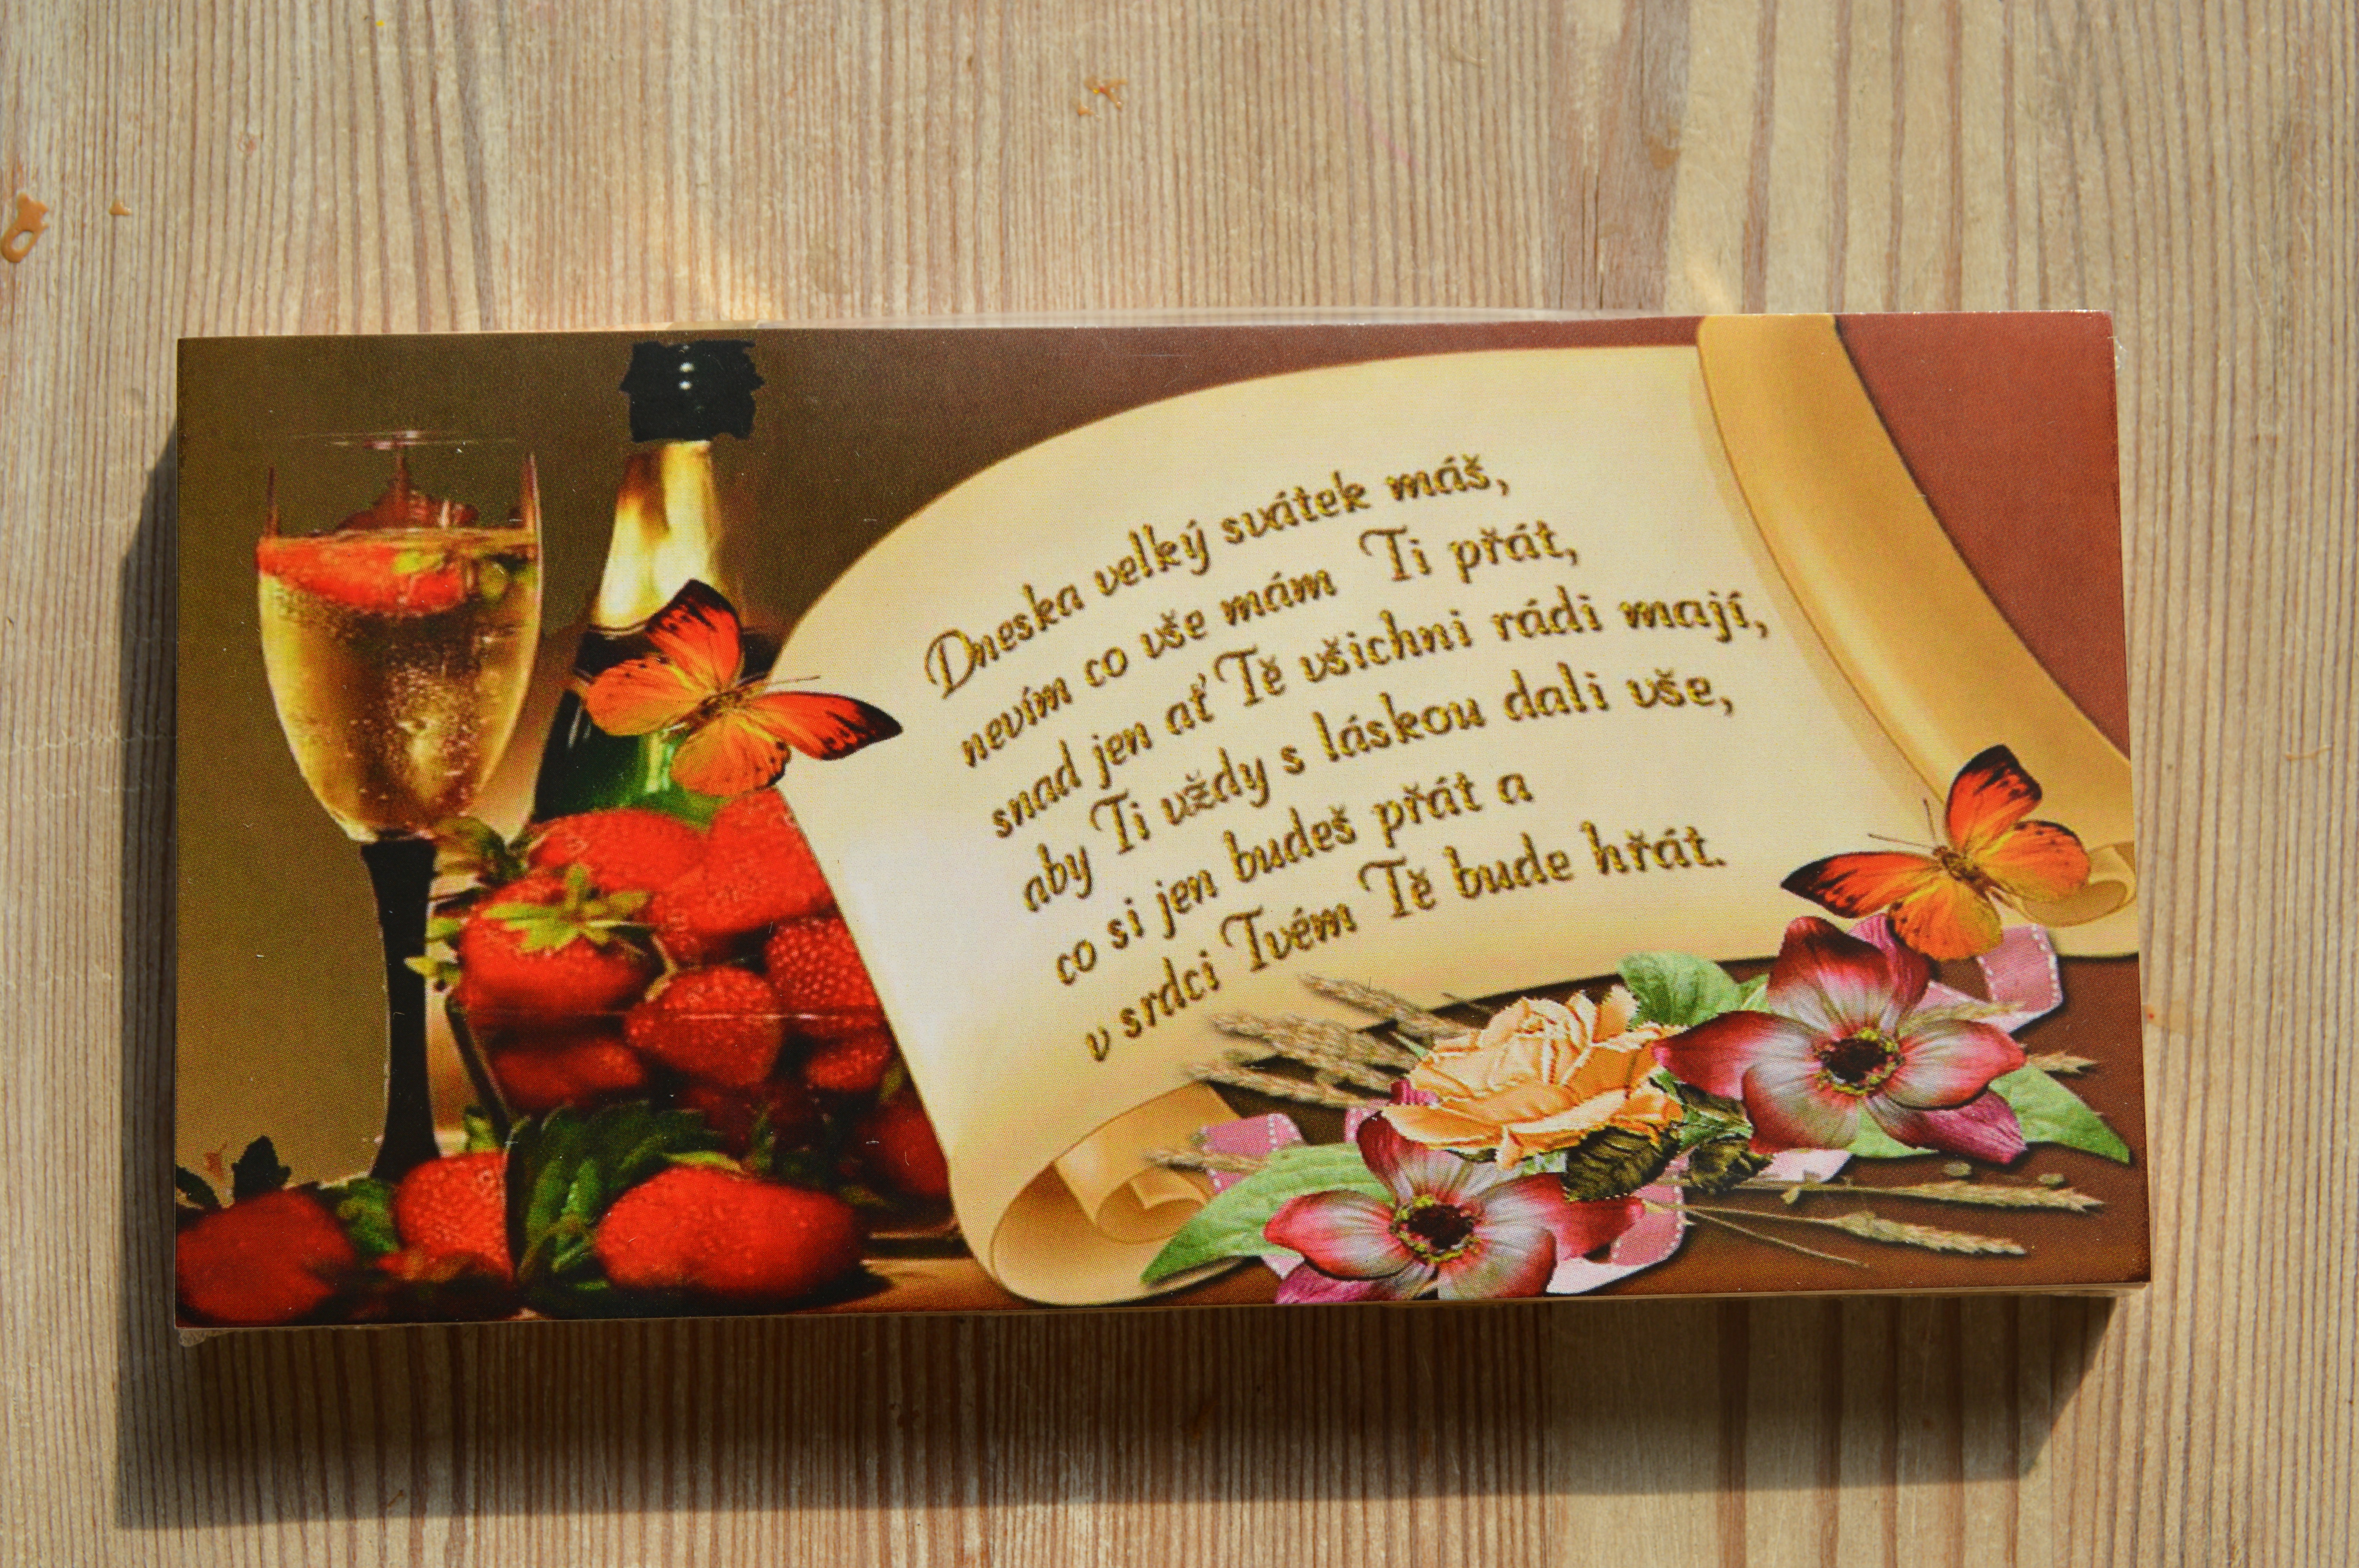 Dneska velký svátek máš,
nevím co vše mám Ti přát,
snad jen ať Tě všichni rádi mají,
aby Ti vždy s láskou dali vše,
co si jen budeš přát a
v srdci Tvém Tě bude hřát.